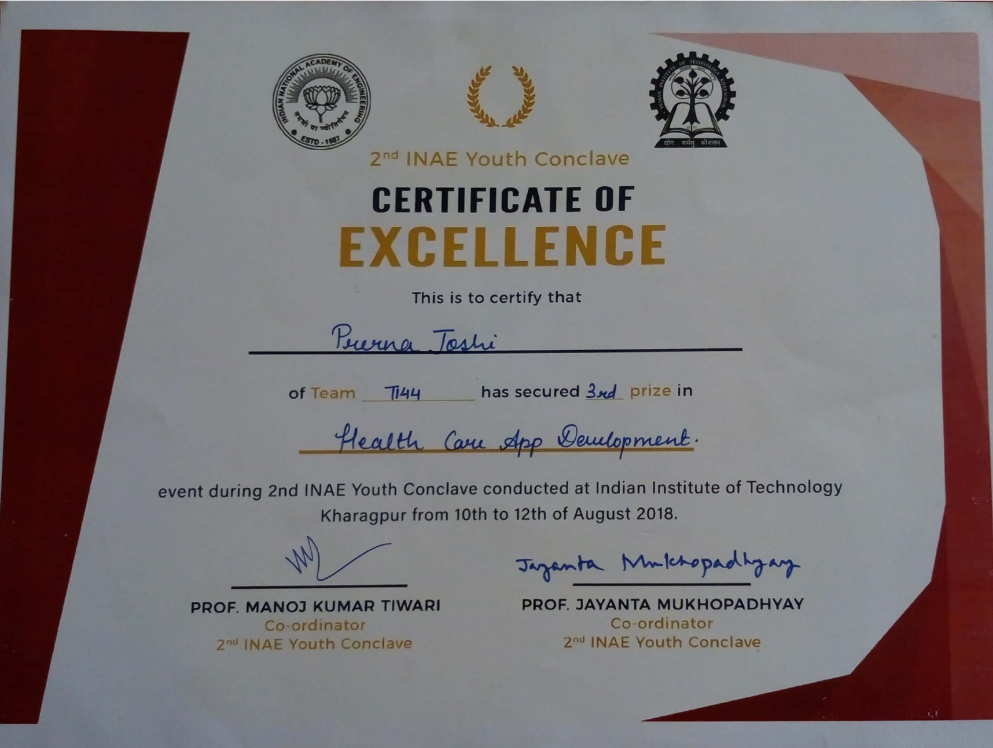 INDIAN NATIONAL ACADEMY OF ENGINEERING
ESTD - 1987
योगः कर्मसु कौशलम्
2nd INAE Youth Conclave
CERTIFICATE OF
EXCELLENCE
This is to certify that
Prerna Joshi
of Team TI44 has secured 3rd prize in
Health Care App Development.
event during 2nd INAE Youth Conclave conducted at Indian Institute of Technology
Kharagpur from 10th to 12th of August 2018.
Jayanta Mukhopadhyay
PROF. MANOJ KUMAR TIWARI PROF. JAYANTA MUKHOPADHYAY
Co-ordinator Co-ordinator
2nd INAE Youth Conclave 2nd INAE Youth Conclave